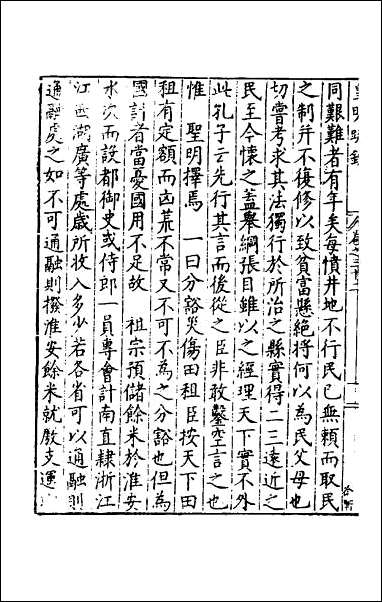 同艱難者有年矣每憤井地不行民已無賴而取民
之制并不復修以致貧富懸絕將何以為民父母也
切嘗考求其法獨行於所治之縣實得二三遠近之
民至今懷之蓋舉綱張目雖以之經理天下實不外
此孔子云先行其言而後從之臣非敢鑿空言之也
惟 聖明擇焉 一曰分豁災傷田租臣按天下田
租有定額而凶荒不常又不可不為之分豁也但為
國計者當憂國用不足故 祖宗預儲餘米於淮安
水次而設都御史或侍郎一員專會計南直隸浙江
江西湖廣等處歲所收入多少若各省可以通融則
通融處之如不可通融則撥淮安餘米就敷支運